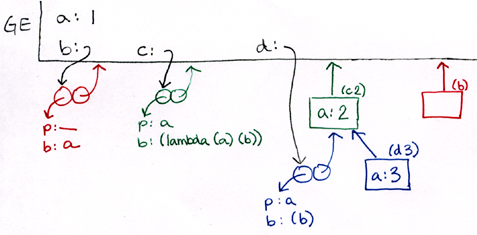 GE
a: 1
b:
c:
d:
(c2)
(b)
a: 2
p: —
b: a
p: a
b: (lambda (a) (b))
(d3)
a: 3
p: a
b: (b)